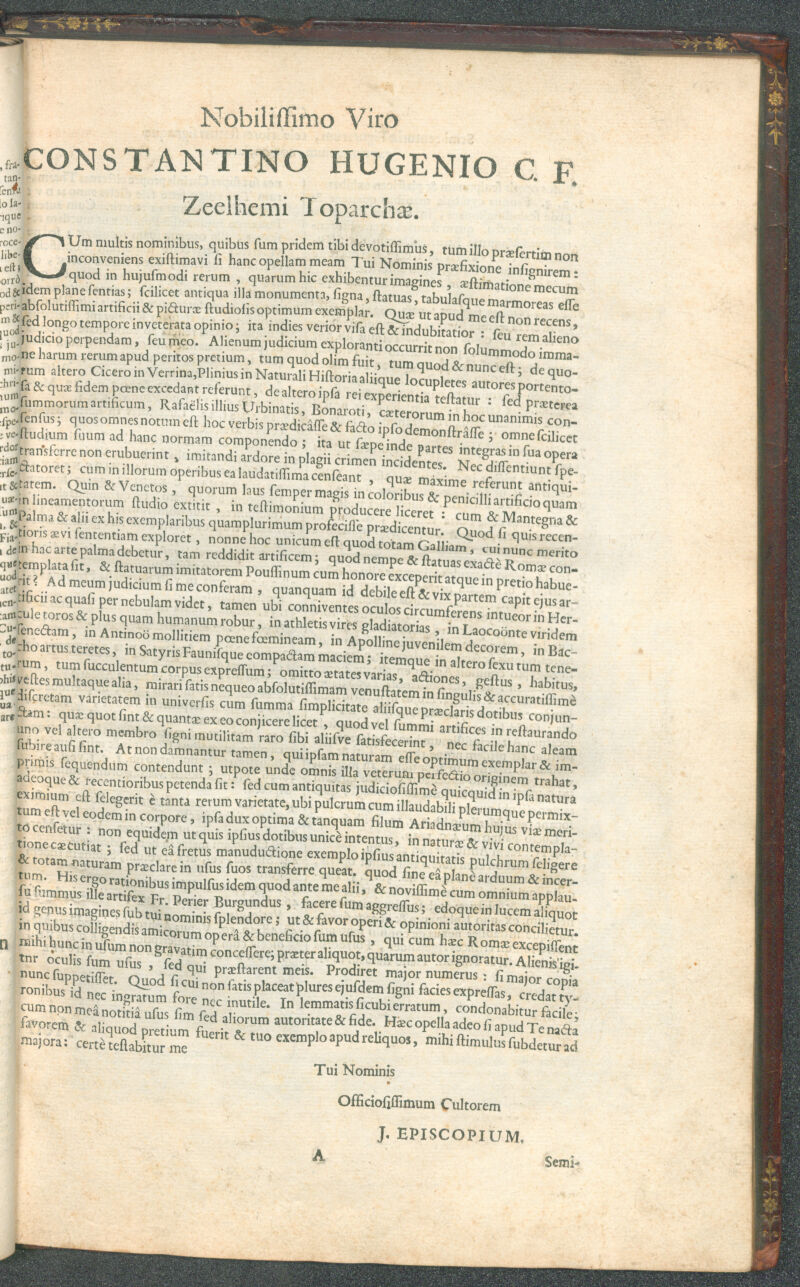 Nobiliſſimo Viro
CONSTANTINO HUGENIO C. F.
Zeelhemi Toparchæ.
CUm multis nominibus, quibus ſum pridem tibi devotiſſimus, tum illo præſertim non
inconveniens exiſtimavi ſi hanc opellam meam Tui Nominis præfixione inſignirem:
quod in hujuſmodi rerum, quarum hic exhibentur imagines, æſtimatione mecum
idem plane ſentias; ſcilicet antiqua illa monumenta, ſigna, ſtatuas, tabulaſque marmoreas eſſe
abſolutiſſimi artificii & picturæ ſtudioſis optimum exemplar. Quæ ut apud me eſt non recens,
ſed longo tempore inveterata opinio; ita indies verior viſa eſt & indubitatior: ſeu rem alieno
judicio perpendam, ſeu meo. Alienum judicium exploranti occurrit non ſolummodo imma-
ne harum rerum apud peritos pretium, tum quod olim fuit, tum quod & nunc eſt; de quo-
rum altero Cicero in Verrina, Plinius in Naturali Hiſtoria aliique locupletes autores portento-
ſa & quæ fidem pœne excedant referunt, de altero ipſa rei experientia teſtatur: ſed præterea
ſummorum artificum, Rafaëlis illius Urbinatis, Bonaroti, cæterorum in hoc unanimis con-
ſenſus; quos omnes notum eſt hoc verbis prædicaſſe & facto ipſo demonſtraſſe; omne ſcilicet
ſtudium ſuum ad hanc normam componendo; ita ut ſæpe inde partes integras in ſua opera
transferre non erubuerint, imitandi ardore in plagii crimen incidentes. Nec diſſentiunt ſpe-
ctatores; cum in illorum operibus ea laudatiſſima cenſeant, quæ maxime referunt antiqui-
tatem. Quin & Venetos, quorum laus ſemper magis in coloribus & penicilli artificio quam
in lineamentorum ſtudio extitit, in teſtimonium producere liceret: cum & Mantegna &
Palma & alii ex his exemplaribus quamplurimum profeciſſe prædicentur. Quod ſi quis recen-
tioris ævi ſententiam exploret, nonne hoc unicum eſt quod totam Galliam, cui nunc merito
in hac arte palma debetur, tam reddidit artificem; quod nempe & ſtatuas exactè Romæ con-
templata ſit, & ſtatuarum imitatorem Pouſſinum cum honore exceperit atque in pretio habue-
rit? Ad meum judicium ſi me conferam, quanquam id debile eſt & vix partem capit ejus ar-
tificii ac quaſi per nebulam videt, tamen ubi conniventes oculos circumferens intueor in Her-
cule toros & plus quam humanum robur, in athletis vires gladiatorias, in Laocoonte viridem
ſenectam, in Antinoö mollitiem pœne fœmineam, in Apolline juvenilem decorem, in Bac-
cho artus teretes, in Satyris Fauniſque compactam maciem; itemque in altero ſexu tum tene-
rum, tum ſucculentum corpus expreſſum; omitto ætates varias, actiones, geſtus, habitus,
veſtes multaque alia, mirari ſatis nequeo abſolutiſſimam venuſtatem in ſingulis & accuratiſſimè
diſcretam varietatem in univerſis cum ſumma ſimplicitate aliiſque præclaris dotibus conjun-
ctam: quæ quot ſint & quantæ ex eo conjicere licet, quod vel ſummi artifices in reſtaurando
uno vel altero membro ſigni mutili tam raro ſibi aliiſve ſatisfecerint, nec facile hanc aleam
ſubire auſi ſint. At non damnantur tamen, qui ipſam naturam eſſe optimum exemplar & im-
primis ſequendum contendunt; utpote unde omnis illa veterum perfectio originem trahat,
adeoque & recentioribus petenda ſit: ſed cum antiquitas judicioſiſſimè quicquid in ipſa natura
eximium eſt ſelegerit è tanta rerum varietate, ubi pulcrum cum illaudabili plerumque permix-
tum eſt vel eodem in corpore, ipſa dux optima & tanquam filum Ariadnæum hujus viæ meri-
to cenſetur: non equidem ut quis ipſius dotibus unicè intentus, in naturæ & vivi contempla-
tione cæcutiat; ſed ut ea fretus manuductione exemplo ipſius antiquitatis pulchrum ſeligere
& totam naturam præclare in uſus ſuos transferre queat, quod ſine ea plane arduum & incer-
tum. His ergo rationibus impulſus idem quod ante me alii, & noviſſimè cum omnium applau-
ſu ſummus ille artifex Fr. Perier Burgundus, facere ſum aggreſſus; edoque in lucem aliquot
id genus imagines ſub tui nominis ſplendore; ut & favor operi & opinioni autoritas concilietur.
in quibus colligendis amicorum operâ & beneficio ſum uſus, qui cum hæc Romæ excepiſſent
mihi hunc in uſum non gravatim conceſſere; præter aliquot, quarum autor ignoratur. Alienis igi-
tnr oculis ſum uſus, ſed qui præſtarent meis. Prodiret major numerus: ſi major copia
nunc ſuppetiſſet. Quod ſi cui non ſatis placeat plures ejuſdem ſigni facies expreſſas, credat ty-
ronibus id nec ingratum fore nec inutile. In lemmatis ſicubi erratum, condonabitur facile;
cum non meâ notitiâ uſus ſim ſed aliorum autoritate & fide. Hæc opella adeo ſi apud Te nacta
favorem & aliquod pretium fuerit & tuo exemplo apud reliquos, mihi ſtimulus ſubdetur ad
majora: certè teſtabitur me
Tui Nominis
Officioſiſſimum Cultorem
J. EPISCOPIUM.
A
Semi-